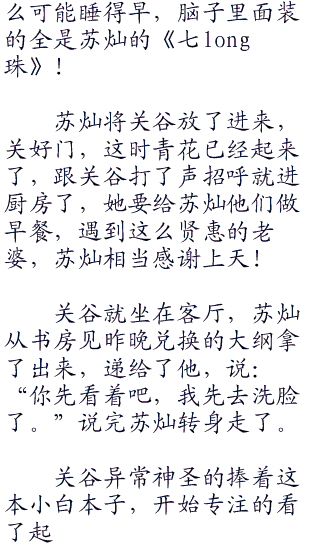 么可能睡得早，脑子里面装
的全是苏灿的《七long
珠》！
苏灿将关谷放了进来，
关好门，这时青花已经起来
了，跟关谷打了声招呼就进
厨房了，她要给苏灿他们做
早餐，遇到这么贤惠的老
婆，苏灿相当感谢上天！
关谷就坐在客厅，苏灿
从书房见昨晚兑换的大纲拿
了出来，递给了他，说：
“你先看着吧，我先去洗脸
了。”说完苏灿转身走了。
关谷异常神圣的捧着这
本小白本子，开始专注的看
了起